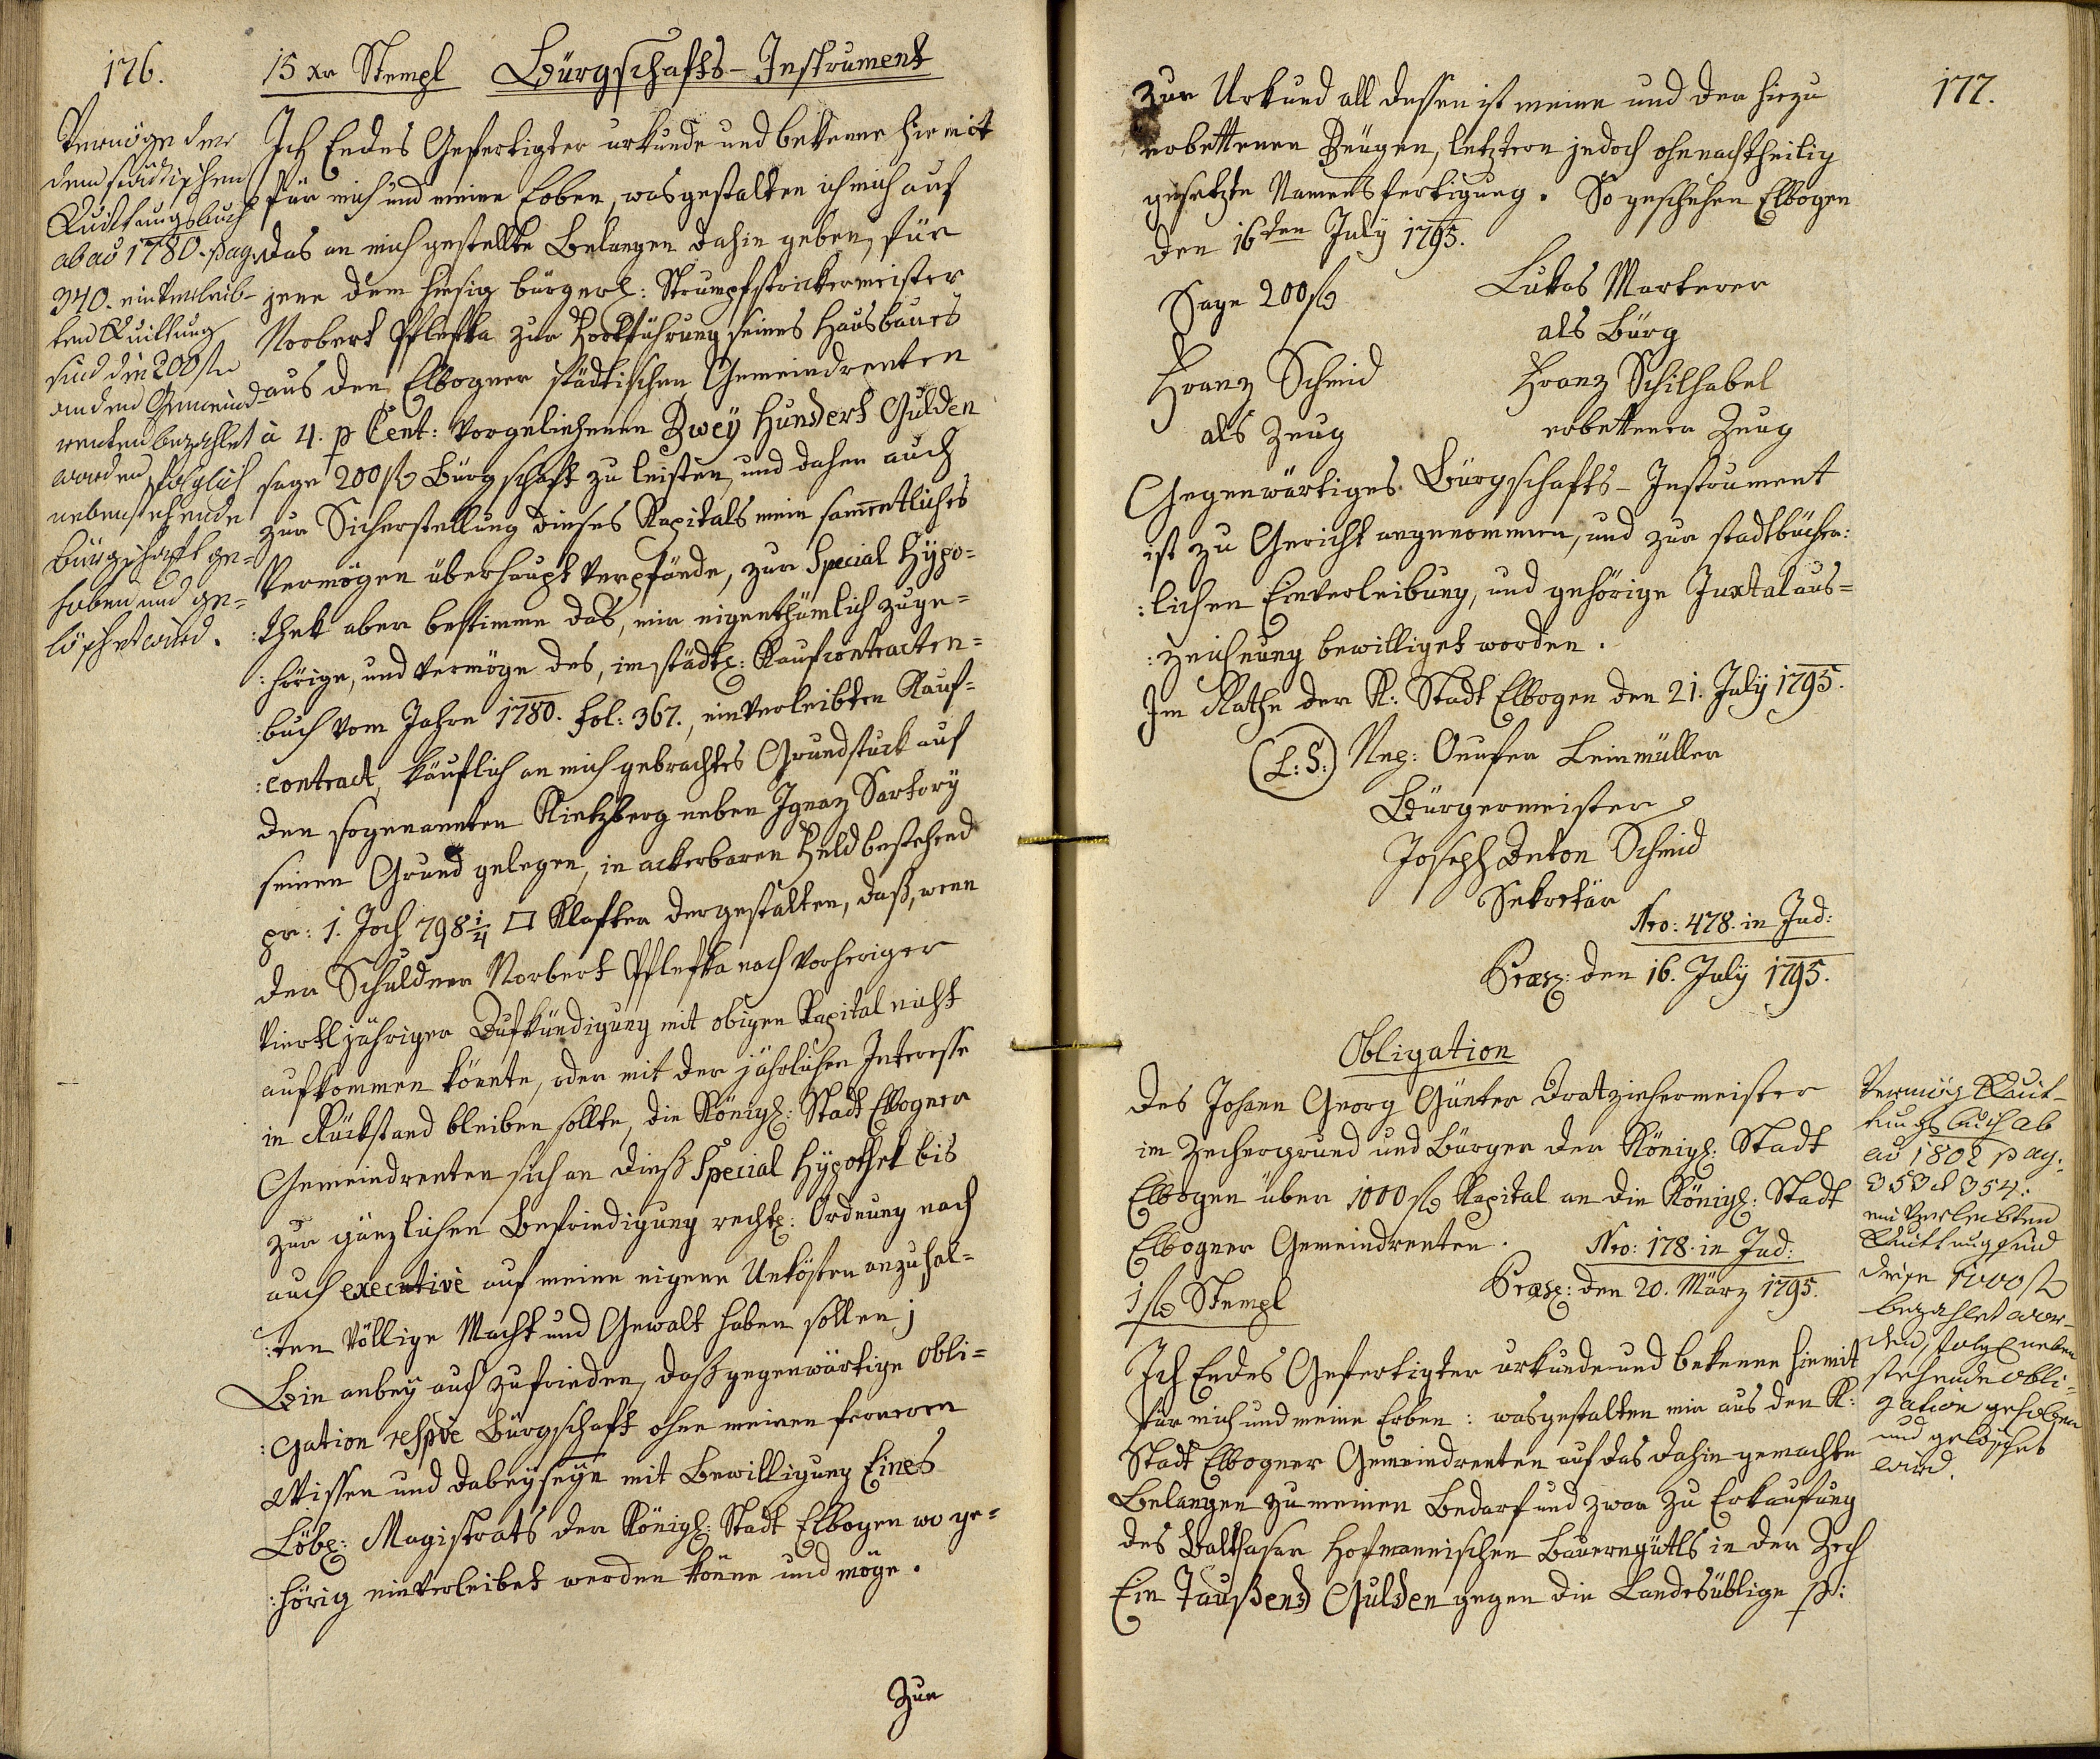 176.
15 xr Stempl Bürgschafts-Instrument
Vermöge der
dem städtischen
Quittungsbuch
ab aö 1780. pag.
340. einverleib-
ten Quittung
sind die 200 fl
an den Gemeind
renten bezahlet
worden, folglich
nebenstehende
Bürgschaft ge-
hoben und ge-
löschet wird.
Ich Endes Gefertigter urkunde und bekenne hiemit
für mich und meine Erben, was gestalten ich mich auf
das an mich gestellte Belangen dahin geben, für
jene dem hiesig bürgerl: Strumpfstrickermeister
Norbert Pflefka zur Fortführung seines Hausbaues
aus den Elbogner städtischen Gemeindrenten
à 4. p Cent: vorgeliehenen Zweÿ Hundert Gulden
sage 200 fl Bürgschaft zu leisten, und daher auch
zur Sicherstellung dieses Kapitals mein sam̄entliches
Vermögen überhaupt verpfände, zur Special Hÿpo=
:thek aber bestimme das, mir eigenthümlich zuge=
:hörige, und vermöge des, im städtl: Kaufcontracten=
:buch vom Jahre 1780. fol: 367., einverleibten Kauf=
:contract, käuflich an mich gebrachtes Grundstuck auf
den sogenannten Kietzberg neben Ignaz Sartorÿ
seinen Grund gelegen, in ackerbaren Feld bestehend
pr: 1. Joch 798 1/4 □ Klafter dergestalten, daß, wenn
der Schuldner Norbert Pflefka nach vorheriger
viertljähriger Aufkündigung mit obigen Kapital nicht
aufkommen könnte, oder mit der jährlichen Interesse
in Rückstand bleiben sollte, die Königl: Stadt Elbogner
Gemeindrenten sich an dieß Special Hÿpothek bis
zur gänzlichen Befriedigung rechtl: Ordnung nach
auch executivè auf meine eigene Unkösten anzuhal=
:ten völlige Macht und Gewalt haben sollen;
Bin anbeÿ auch zufrieden, daß gegenwärtige Obli=
:gation respvè Bürgschaft ohne meinen ferneren
Wissen und Dabeÿseÿn mit Bewilligung Eines
Löbl: Magistrats der Königl: Stadt Elbogen wo ge=
:hörig einverleibet werden könne und möge.
Zur
177.
Zur Urkund all dessen ist meine und der hiezu
erbettenen Zeugen, letztern jedoch ohnenachtheilig
gesetzte Namensfertigung. So geschehen Elbogen
den 16ten Julÿ 1795.
Sage 200 fl
Lukas Marterer
als Bürg
Franz Schmid
als Zeug
Franz Schilhabel
erbettener Zeug
Gegenwärtiges Bürgschafts-Instrument
ist zu Gericht angenommen, und zur stadtbücher:
:lichen Einverleibung, und gehörige Juxtalaus=
:zeichnung bewilliget worden.
Im Rathe der K: Stadt Elbogen den 21. Julÿ 1795.
(L:S:) Nep: Onufer Leinmüller
Bürgermeister
Joseph Anton Schmid
Sekretär
Nro: 478. in Jud:
Præs: den 16. Julÿ 1795.
Obligation
Des Johann Georg Günter Dratziehermeister
im Zechergrund und Bürger der Königl: Stadt
Elbogen über 1000 fl Kapital an die Königl: Stadt
Elbogner Gemeindrenten.
Nro: 178. in Jud:
1 fl Stempl
Præs: den 20. März 1795.
Ich Endes Gefertigter urkunde und bekenne hiemit
für mich und meine Erben: wasgestalten mir aus den K:
Stadt Elbogner Gemeindrenten auf das dahin gemachte
Belangen zu meinen Bedarf und zwar zu Erkaufung
des Balthasar Hofmannischen Bauerngütls in der Zech
Ein Taußend Gulden gegen die Landesüblige p:
Vermög Quit-
tungsbuch ab
aö 1802 pag:
353 et 354:
einverleibten
Quittung sind
diese 1000 fl
bezahlet wor-
den, folgl neben
stehende Obli-
gation gehoben
und gelöschet
wird.